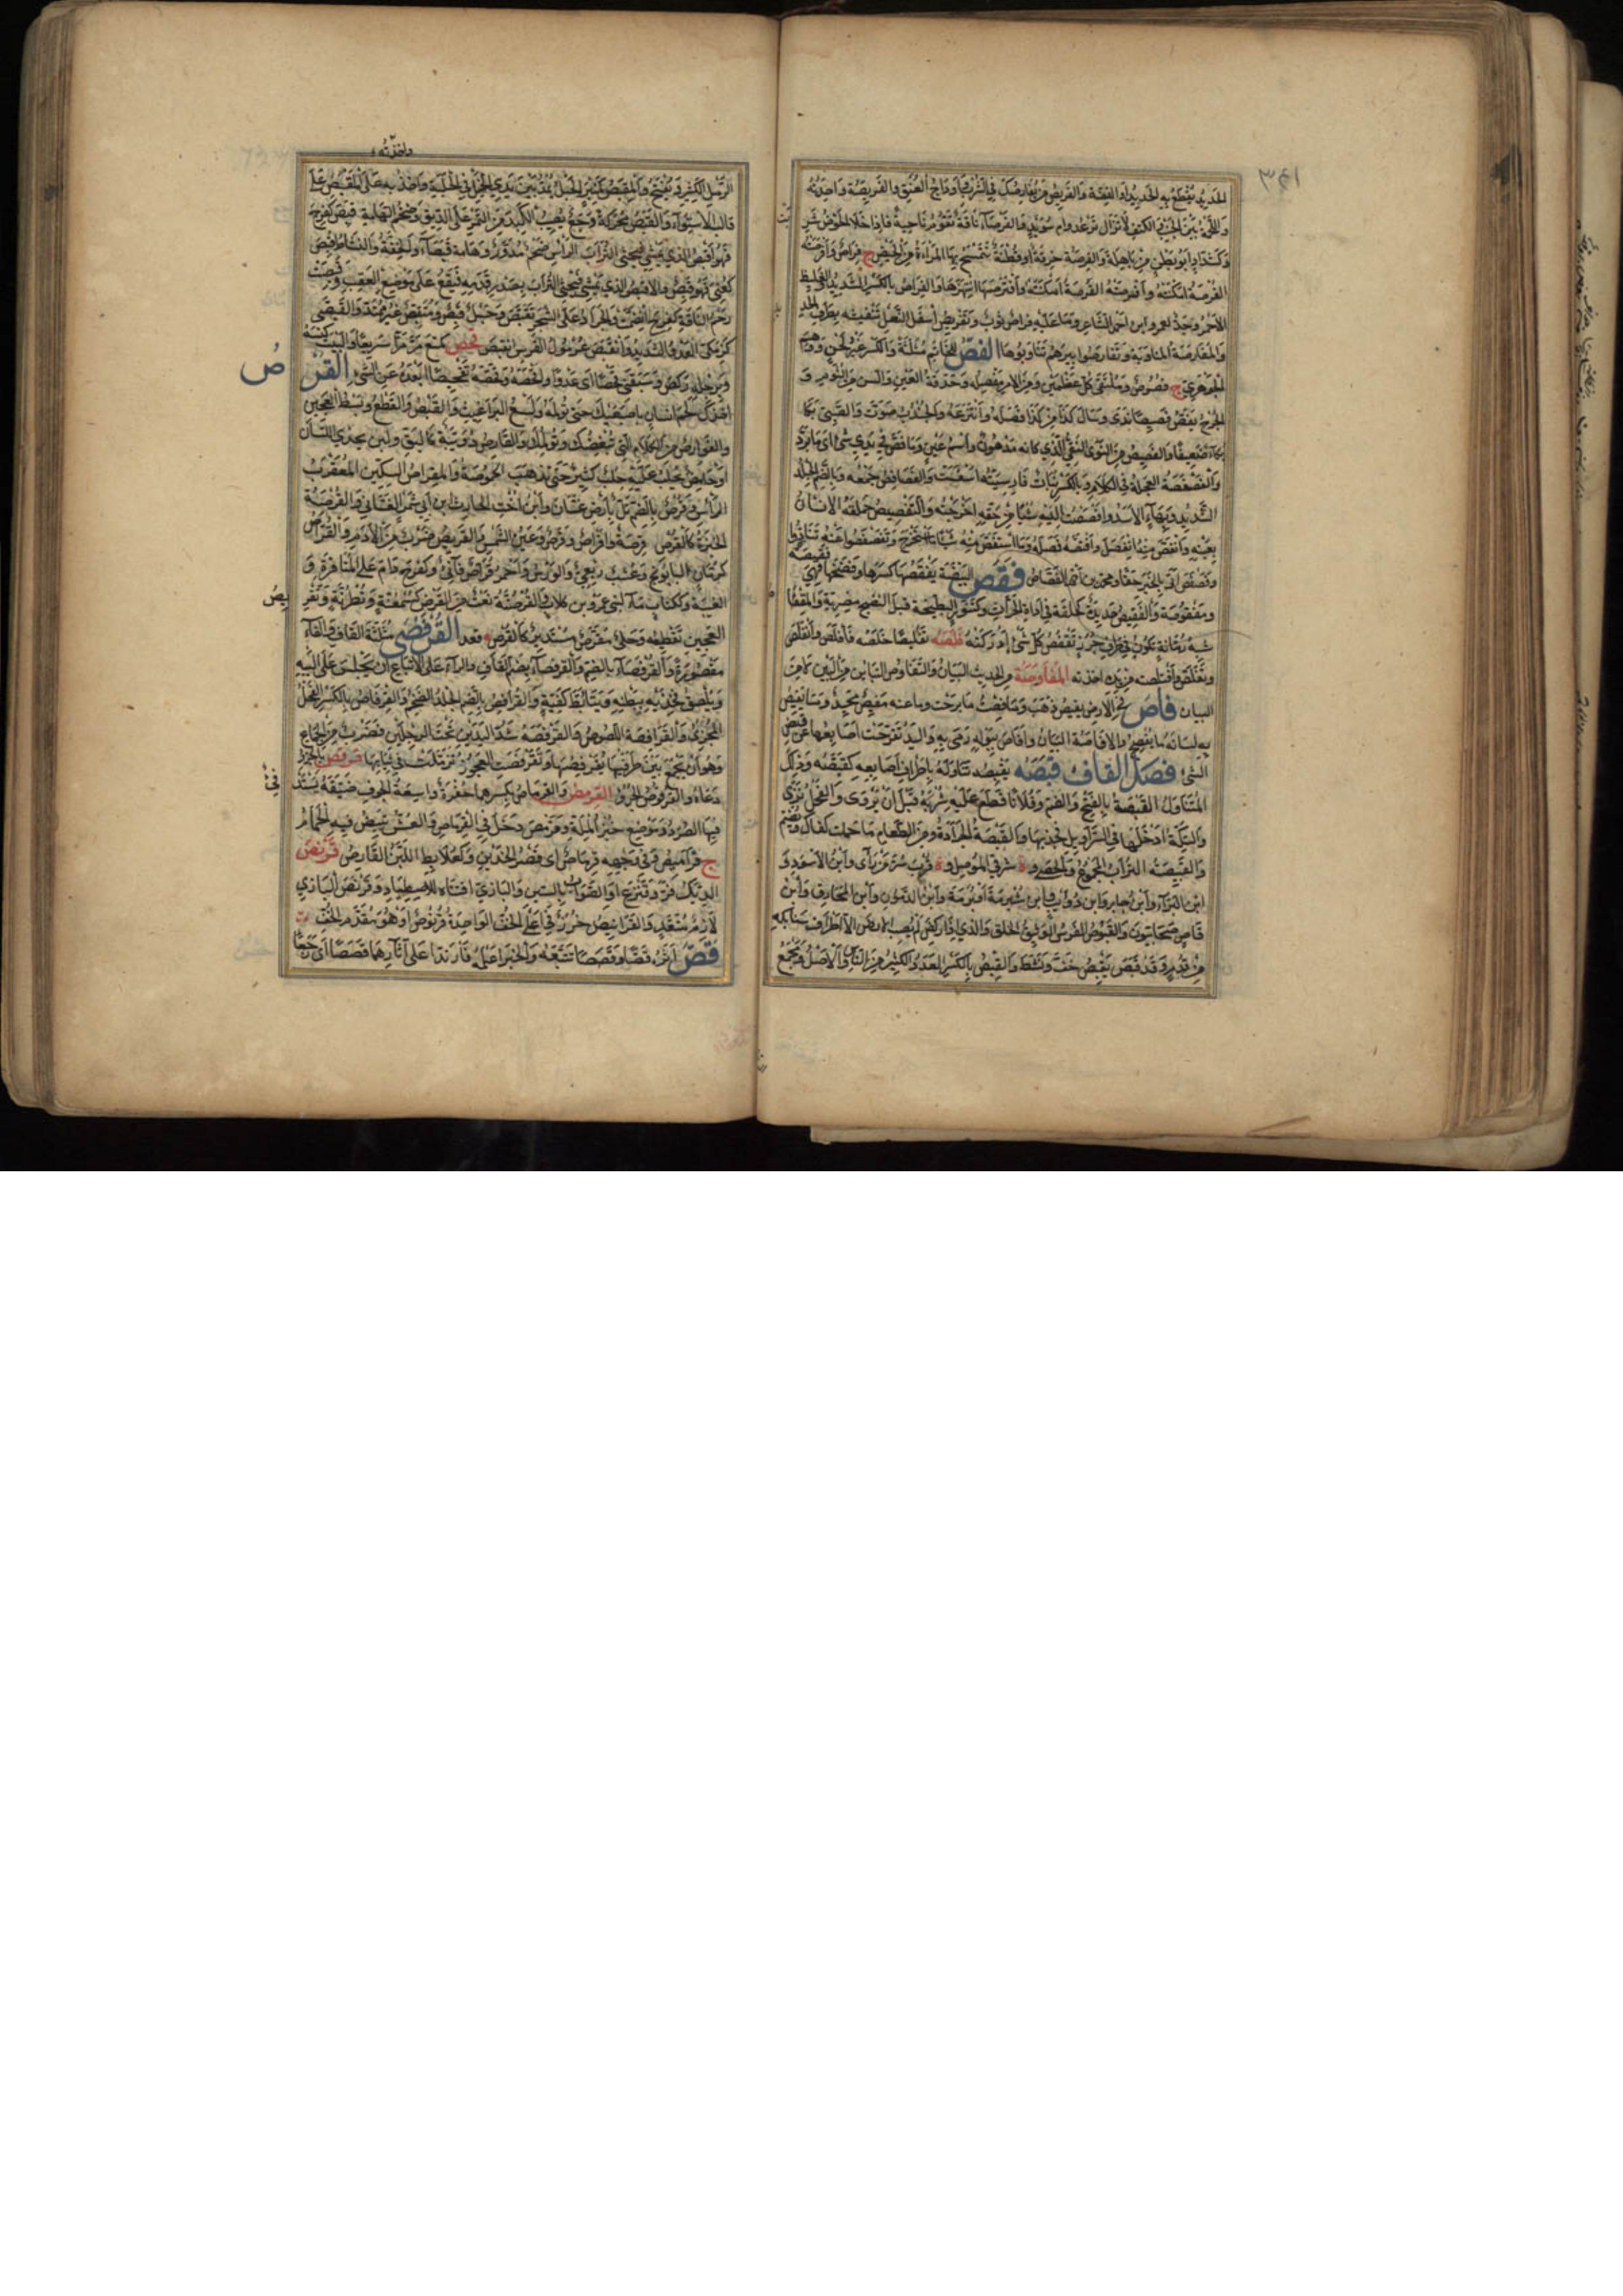 ٣٤١
الحديد يقطع به الحديد او الفضة والفريص من يفارصك في الشرب واوداج العنق والفريصة واحدته
واللحمة بين الجنب والكتف لا تزال ترعد وام سويد والفرصاء ناقة تقوم ناحية فاذا خلا الحوض شربت
وكشداد ابو بطن من باهلة والفرصة خرقة او قطنة تتمسح بها المراة من الحيض ج فراص وافرصته
الفرصة امكنته وافترصها انتهزها والفراص بالكسر الشديد الغليظ
الاحمر وجد لعمرو بن احمر الشاعر وما عليه فراص ثوب وتفريص اسفل النعل تنقيشه بطرف الحديد
والمفارصة المناوبة وتفارصوا بيرهم تناوبوها الفص للخاتم مثلثة والكسر غير لحن ووهم
الجوهري ج فصوص وملتقى كل عظمين ومن الامر مفصله وحدقة العين والسن من الثوم و
الجرح يفص فصيصا ندى وسال كذا من كذا فصله وانتزعه والجندب صوت والصبي بكى
بكاء ضعيفا والفصيص من النوى النقي الذي كانه مدهون واسم عين وما فص في يدي شئ اي ما برد
والفصفصة العجلة في الكلام وبالكسر نبات فارسيته اسفست والفصافص جمعه وبالضم الجلد
الشديد وبهاء الاسد وافصصت اليه شيا من حقه اخرجته والتفصيص حملقة الانسان
بعينه وانفص منه انفصل وافتصه فصله وما استفص منه شيئا ما استخرج وتفصفصوا عنه تنادوا
وفصفص اتى بالخبر حقا ومحمد بن احمد الفصاص فقص البيضة يفقصها كسرها وفضخها فهي فقيصة
ومفقوصة والفقيص حديدة كحلقة في اداة الحراث وكتنور البطيخة قبل النضج مصرية والمقفاص
شبه رمانة تكون في طرف جرز تفقص كل شئ ادركته فلصه تفليصا خلصه فافلص وانفلص
وتفلص وافتلصته من يده اخذته المفاوصة من الحديث البيان والتفاوص التباين من البين لا من
البيان فاص في الارض يفيص ذهب وما فصت ما برحت وما عنه مفيص محيد وما يفيص
به لسانه ما يفصح والافاصة البيان وافاص ببوله رمى به واليد تفرجت اصابعها عن قبض
الشئ فصل القاف قبصه يقبصه تناوله باطراف اصابعه كقبصه وذلك
المتناول القبصة بالفتح والضم وفلانا قطع عليه شربه قبل ان يروى والفحل نزى
والتكة ادخلها في السراويل فجذبها والقبصة الجرادة ومن الطعام ما حملت كفاك ويضم
والقبيصة التراب المجموع والحصى وة شرقي الموصل وة قرب سر من رأى وابن الاسود و
ابن البراء وابن جابر وابن ذؤيب وابن شبرمة او برمة وابن الدمون وابن المخارق وابن
وقاص صحابيون والقبوص الفرس الوثيق الخلق والذي اذا ركض لم يصب الارض الا اطراف سنابكه
من قدم وقد قبص يقبص خف ونشط والقبص بالكسر العدد الكثير من الناس والاصل ومجمع
واخذته
الرمل الكثير ويفتح والمقبص كمنبر الحبل يمد بين يدي الخيل في الحلبة واخذ به على المقبص على
قالب الاستواء والقبص محركة وجع يصيب الكبد من التمر على الريق وضخم الهامة قبص كفرح
فهو اقبص الذي يمشي فيحثي التراب الرأس ضخم مدور وهامة قبصاء والخفة والنشاط قبص
كعني فهو قبص والاقبص الذي يمشي فيحثي التراب بصدر قدميه فيقع على موضع العقب وقبصت
رحم الناقة كفرح انضمت والجراد على الشجر تقبص وحبل قبص ومتقبص غير ممتد والقبصى
كزمكى العدو الشديد وانقبص غرمول الفرس انقبض قحص كمنع مر مرا سريعا والبيت كنسه
وبرجله ركض وسبقني قحصا اي عدوا واقحصه وقحصه تقحيصا ابعده عن الشئ القرص
اخذك لحم انسان باصبعيك حتى تؤلمه ولسع البراغيث والقبض والقطع وبسط العجين
والقوارص من الكلام التي تنغصك وتؤلمك والقارص دويبة كالبق ولبن يحذي اللسان
او حامض يحلب عليه حليب كثير حتى تذهب الحموضة والمقراص السكين المعقرب
الرأس وقرص بالضم تل بارض غسان وابن اخت الحارث بن ابي شمر الغساني والقرصة
الخبزة كالقرص ج قرصة واقراص وقرص وعين الشمس والقريص ضرب من الادم والقراص
كرمان البابونج وعشب ربعي والورس واحمر قراص قانئ وكفرح دام على المنافرة و
الغيبة وككتاب ماء لبني عمرو بن كلاب والقرصنة نعت من القرص كسمعنة ونظرنة وتقريص
العجين تقطيعه وحلي مقرص مستدير كالقرص قعد القرفصى مثلثة القاف والفاء
مقصورة والقرفصاء بالضم والقرفصاء بضم القاف والراء على الاتباع ان يجلس على اليتيه
ويلصق فخذيه ببطنه ويتابط كفيه والقرافص بالضم الجلد الضخم والقرفاص بالكسر الفحل
المجزئ والقرافصة اللصوص والقرفصة شد اليدين تحت الرجلين وضرب من الجماع
وهو ان يجمع بين طرفيها يقرفصها وتقرفصت العجوز تزملت في ثيابها قرقص بالجرو
دعاه والقرقوص الجرو القرمص والقرماص بكسرهما حفرة واسعة الجوف ضيقة يستدفئ
فيها الصرد وموضع خبز الملة وقرمص دخل في القرماص والعش يبيض فيه الحمام
ج قراميص وفي وجهه قرماص اي قصر الخدين وكعلابط اللبن القارص قرنص
الديك فر وقنزع او الصواب بالسين والبازي اقتناه للاصطياد وقرنص البازي
لازم متعد والقرانيص خرز في اعلى الخف الواحدة قرنوص او هو مقدم الخف
قص اثره قصا وقصصا تتبعه والخبر اعلمه فارتدا على اثارهما قصصا اي رجعا